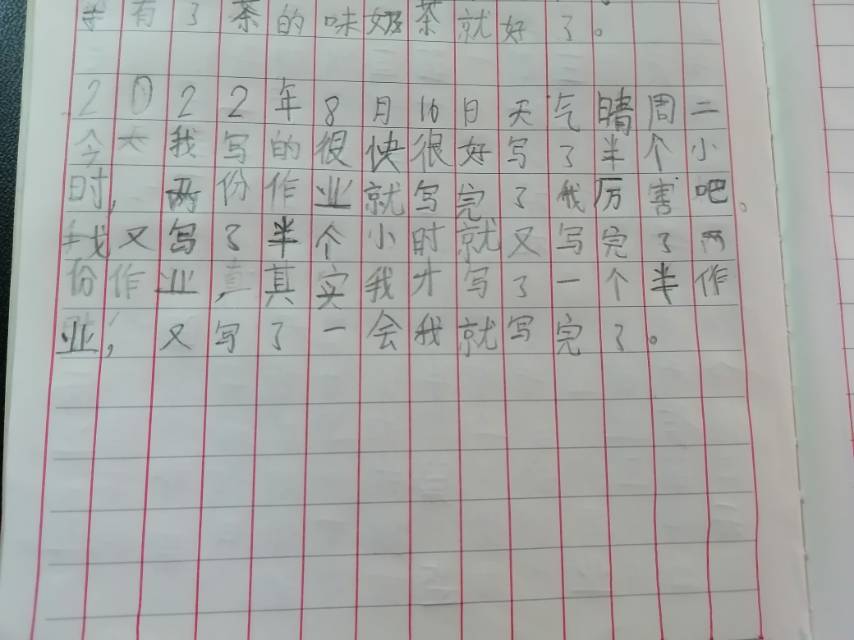 有了茶的味奶茶就好了。
2022年8月16日天气晴周二
今天我写的很快很好写了半个小
时，两份作业就写完了我厉害吧。
我又写了半个小时就又写完了两
份作业，其实我才写了一个半作
业，又写了一会我就写完了。